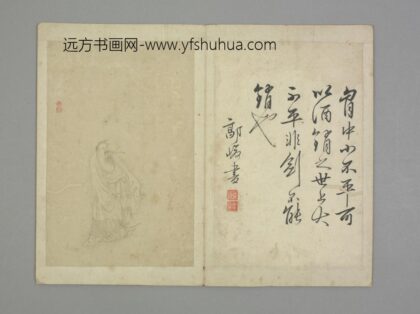 远方书画网-www.yfshuhua.com
胷中小不平可
以酒銷之世上大
不平非劍不能
銷也
鄒㟲書